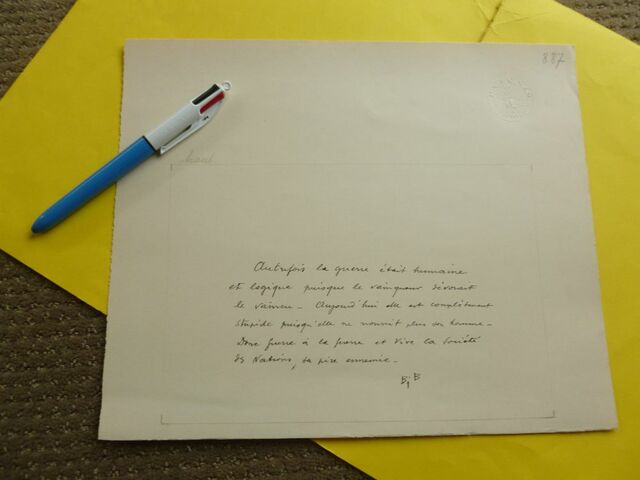 887
haut
Autrefois la guerre était humaine
et logique puisque le vainqueur dévorait
le vaincu - Aujourd'hui elle est complètement
stupide puisqu'elle ne nourrit plus son homme -
Donc guerre à la guerre et vive la Société
des Nations, sa pire ennemie -
BiB